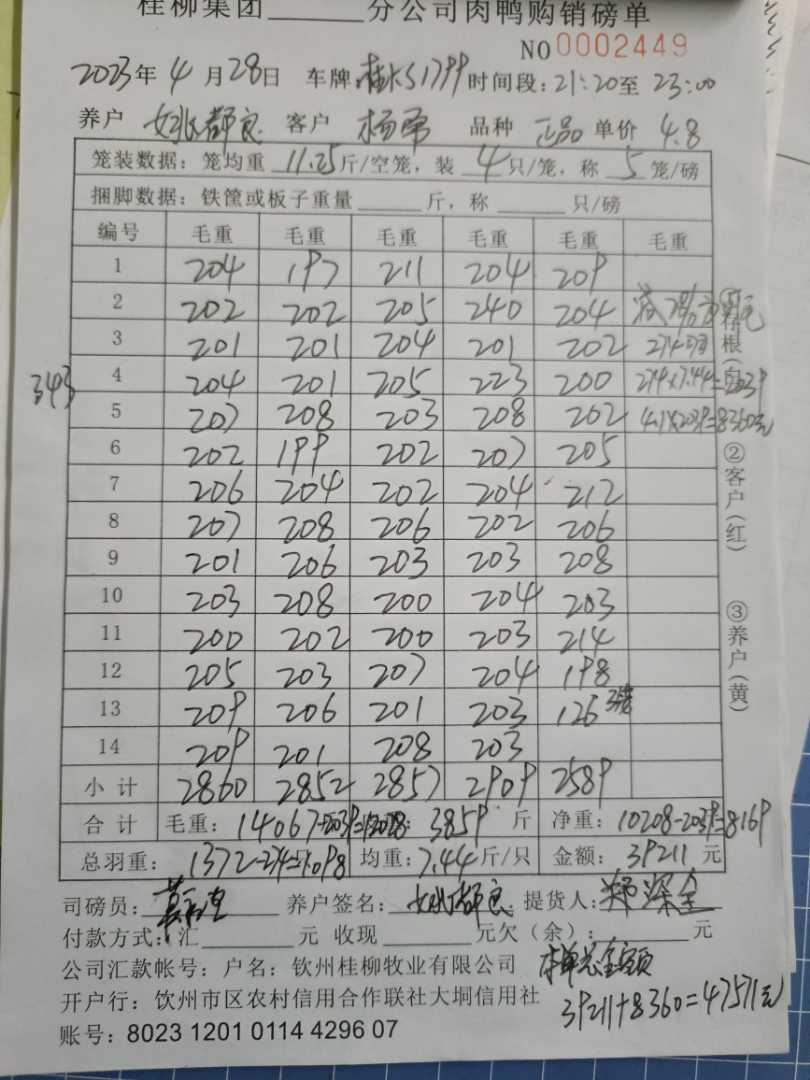 桂柳集团______分公司肉鸭购销磅单
NO 0002449
2023年 4 月 28日 车牌: 时间段: 21:20至 23:00
养户 姚都良 客户 杨 品种 正品 单价 4.8
笼装数据: 笼均重 11.25 斤/空笼, 装 4 只/笼, 称 5 笼/磅
捆脚数据: 铁筐或板子重量______斤, 称______只/磅
编号 毛重 毛重 毛重 毛重 毛重 毛重
1 204 197 211 204 209
2 202 202 205 240 204
3 201 201 204 201 202
4 204 201 205 223 200 274×7.44=2039
343
5 207 208 203 208 202 4.1×2039=8360元
6 202 199 202 207 205
7 206 204 202 204 212
8 207 208 206 202 206
9 201 206 203 203 208
10 203 208 200 204 203
11 200 202 200 203 214
12 205 203 207 204 198
13 209 206 201 203 126
14 209 201 208 203
小计 2860 2852 2857 2909 2589
合计 毛重: 14067 3859 斤 净重: 10208-2039=8169
总羽重: 1372-274=1098 均重: 7.44斤/只 金额: 39211 元
司磅员: 养户签名: 姚都良 提货人:
付款方式: 汇______元 收现______元欠(余):______元
公司汇款帐号: 户名: 钦州桂柳牧业有限公司 本单总金额
开户行: 饮州市区农村信用合作联社大垌信用社 39211+8360=47571元
账号: 8023 1201 0114 4296 07
根
②客户(红)
③养户(黄)